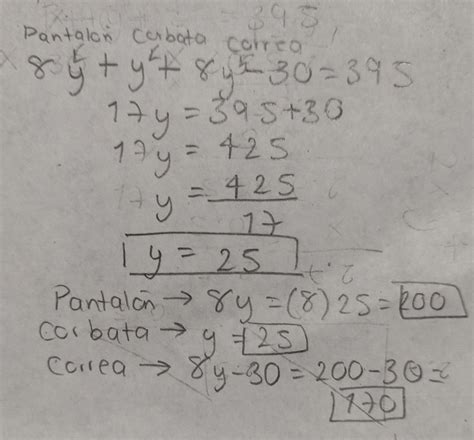 395
Pantalón Corbata Correa
8y + y + 8y - 30 = 395
17y = 395+30
17y = 425
y = 425
17
y = 25
Pantalón → 8y = (8) 25 = 200
Corbata → y = 25
Correa → 8y-30 = 200-30 =
170